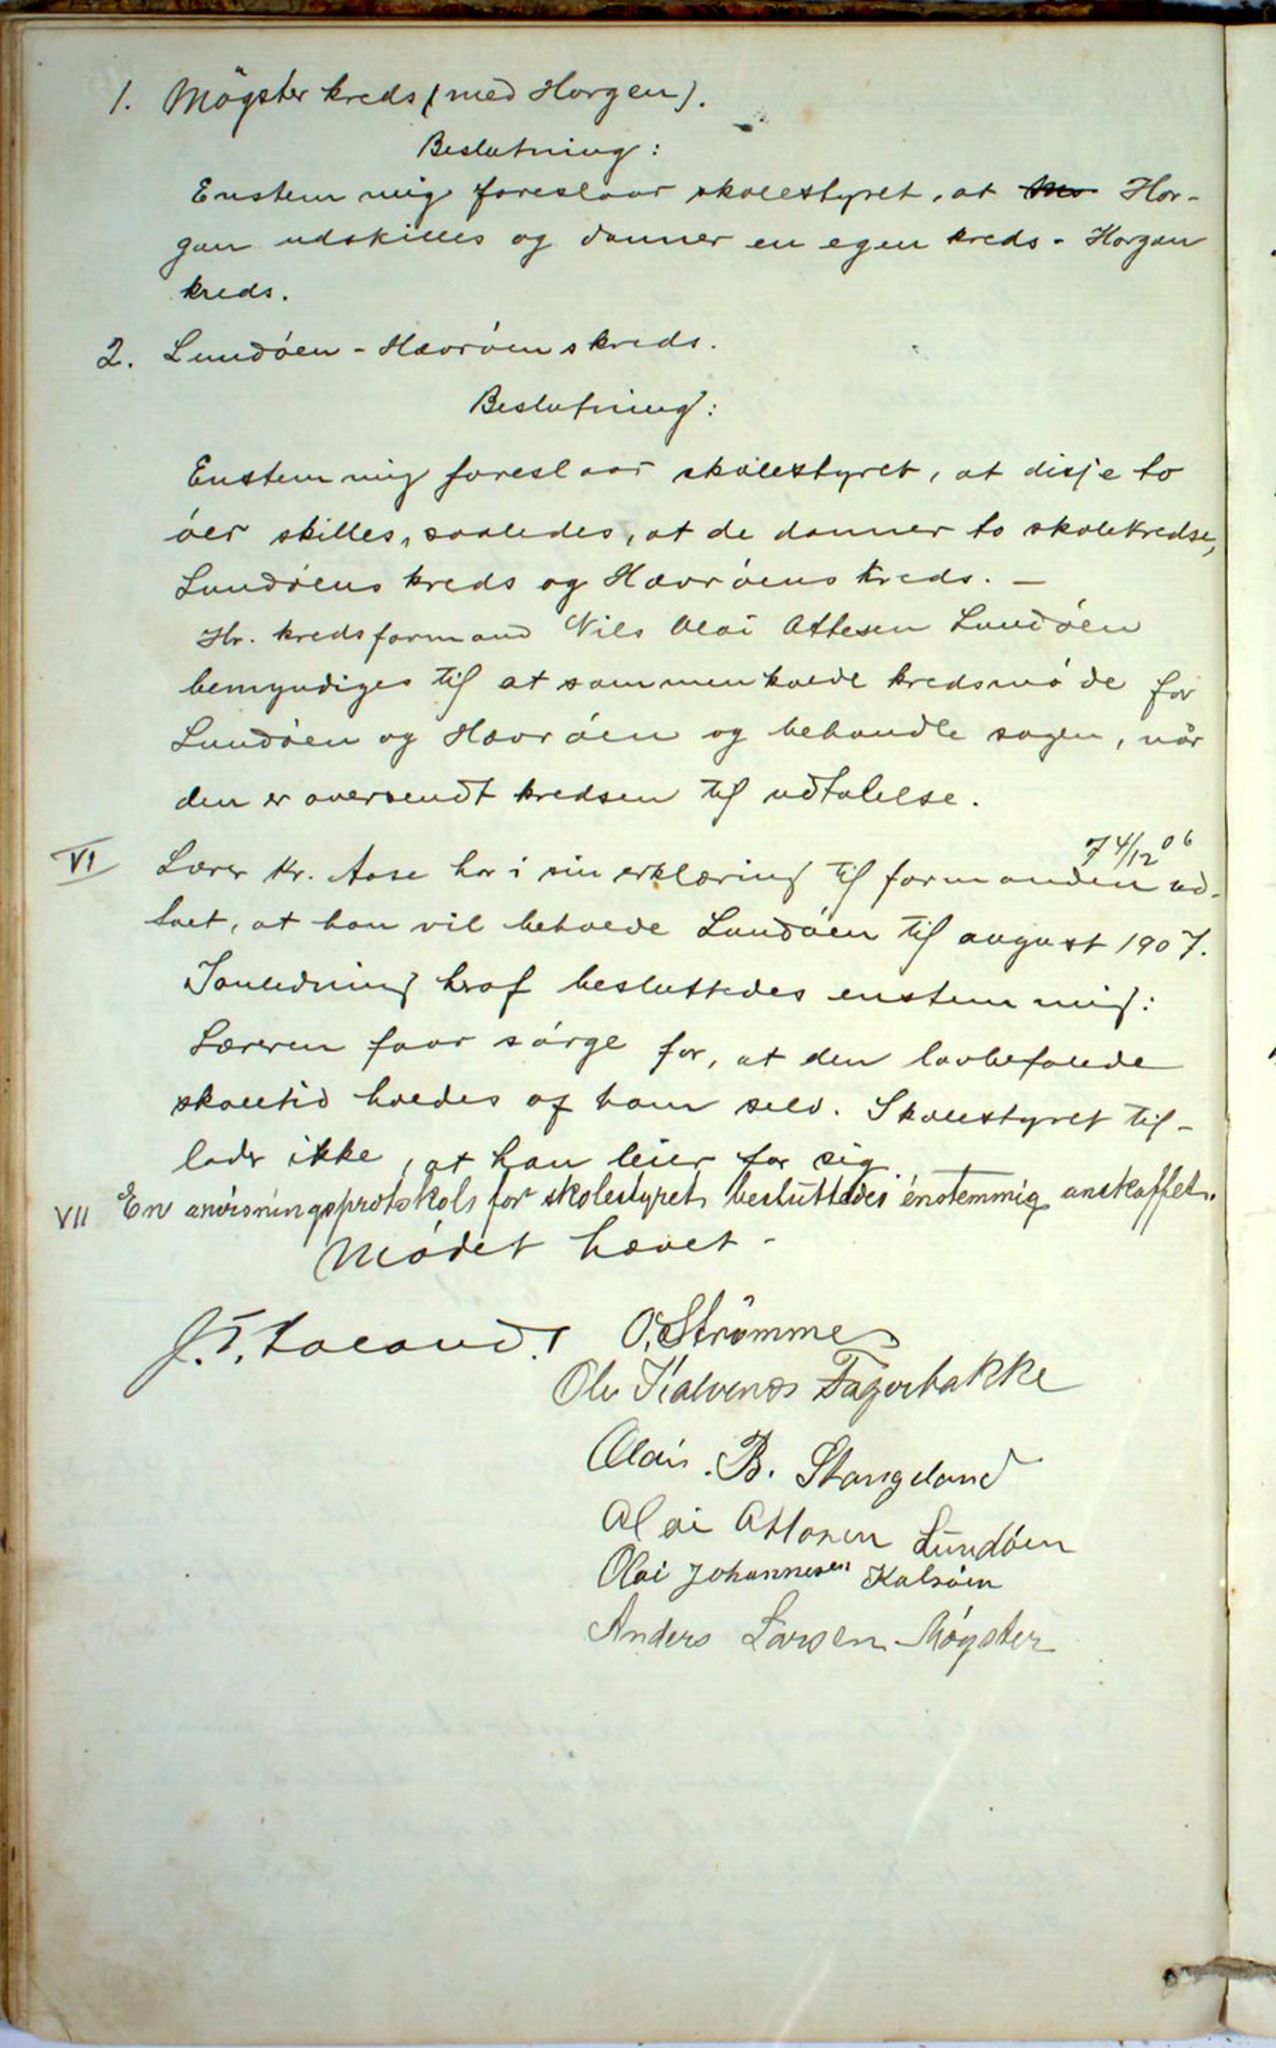 1. Mögster kreds (med Horgen).
Beslutning:
Enstemmig foreslaar skolestyret, at Hor-
gen udskilles og danner en egen kreds - Horgen
kreds.
2. Lundöen - Hævröens kreds.
Beslutning:
Enstemmig foreslaar skolestyret, at disse to
öer skilles, saaledes, at de danner to skolekredse,
Lundöens kreds og Hævröens kreds. -
Hr. kredsformand Nils Olai Attesen Lundöen
bemyndiges til at sammenkalde kredsmöde for
Lundöen og Hævröen og behandle sagen, når
den er oversendt kredsen til udtalelse.
VI Lærer Kr. Aase har i sin erklæring til formanden 4/12 06 ud-
talt, at han vil beholde Lundöen til august 1907.
I anledning heraf besluttedes enstemmig:
Læreren faar sörge for, at den lovbefalede
skoletid holdes af ham selv. Skolestyret til-
lader ikke, at han leier for sig.
VII En anvisningsprotokol for skolestyret besluttedes enstemmig anskaffet.
Mödet hævet -
O. Strömme
Ole Fagerbakke
Olai B. Stangeland
Olai Attesen Lundöen
Olai Johannesen Kalsöen
Anders Larsen Mögster